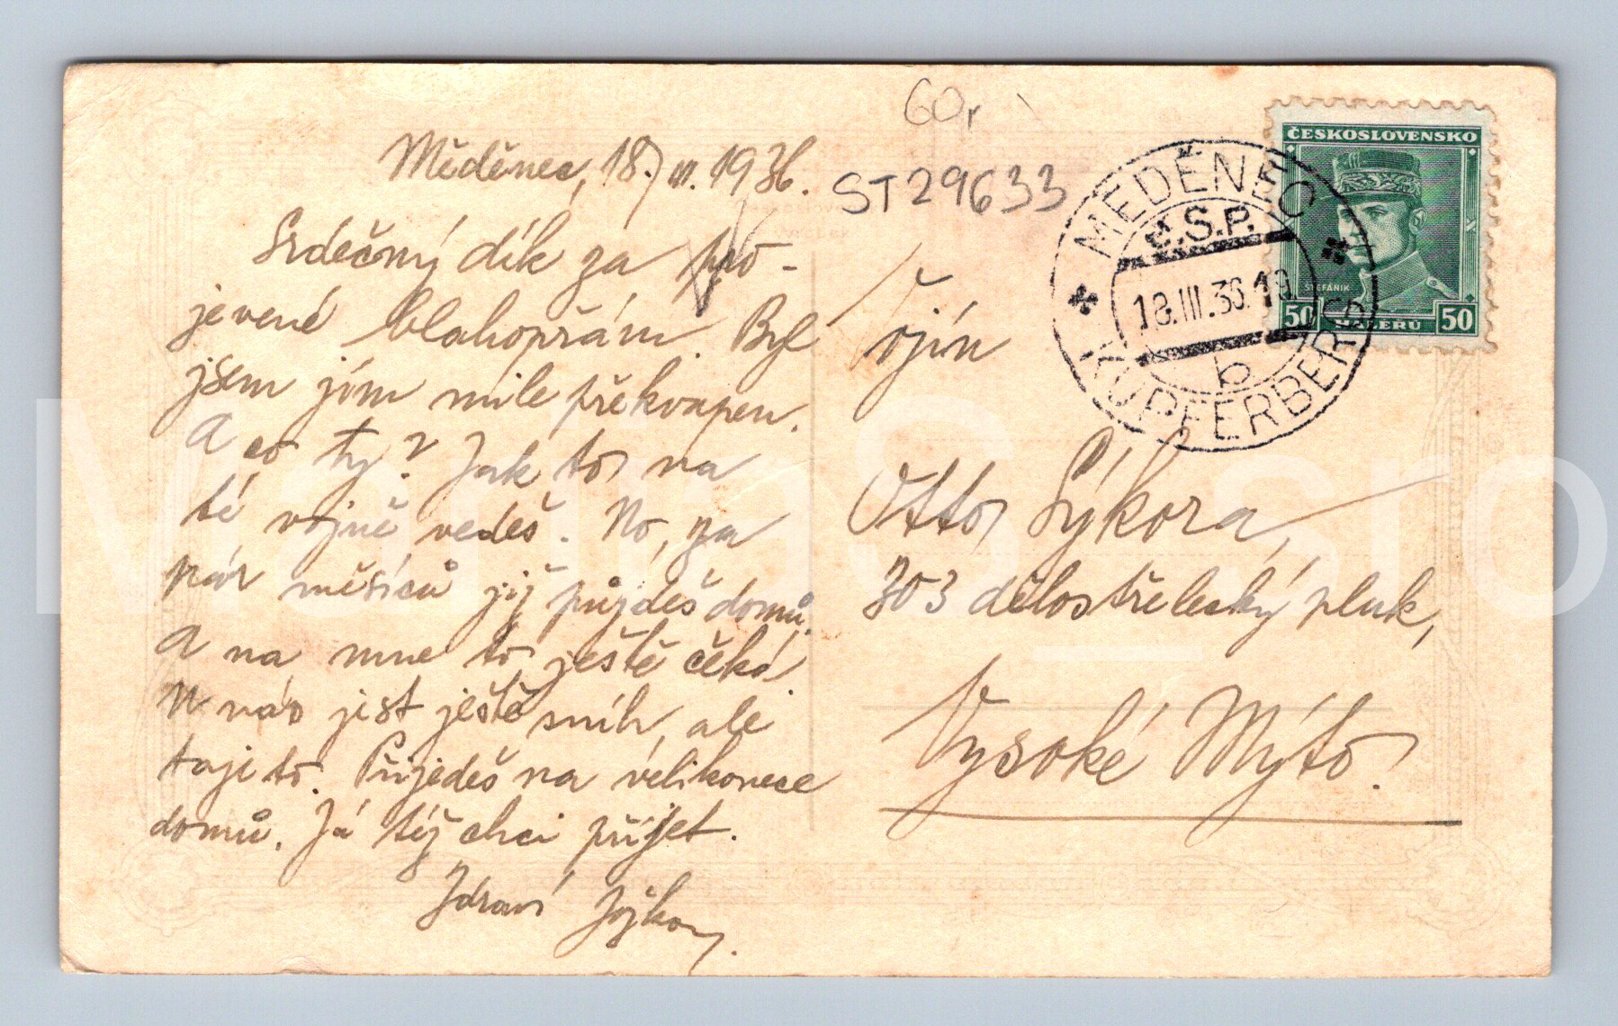 60,-
ST29633
Měděnec, 18./III. 1936.
Srdečný dík za pro-
jevené blahopřání. Byl
jsem jím mile překvapen.
A co ty? Jak to na
té vojně vedeš. No, za
pár měsíců již půjdeš domů.
A na mne to ještě čeká.
U nás jest ještě sníh, ale
taje to. Přijedeš na velikonoce
domů. Já též chci přijet.
Zdraví
vojín
Otto Sýkora,
303 dělostřelecký pluk,
Vysoké Mýto.
MĚDĚNEC
Č.S.P.
18.III.36.19
b
KUPFERBERG
ČESKOSLOVENSKO
ŠTEFÁNIK
50 HALÉŘŮ 50